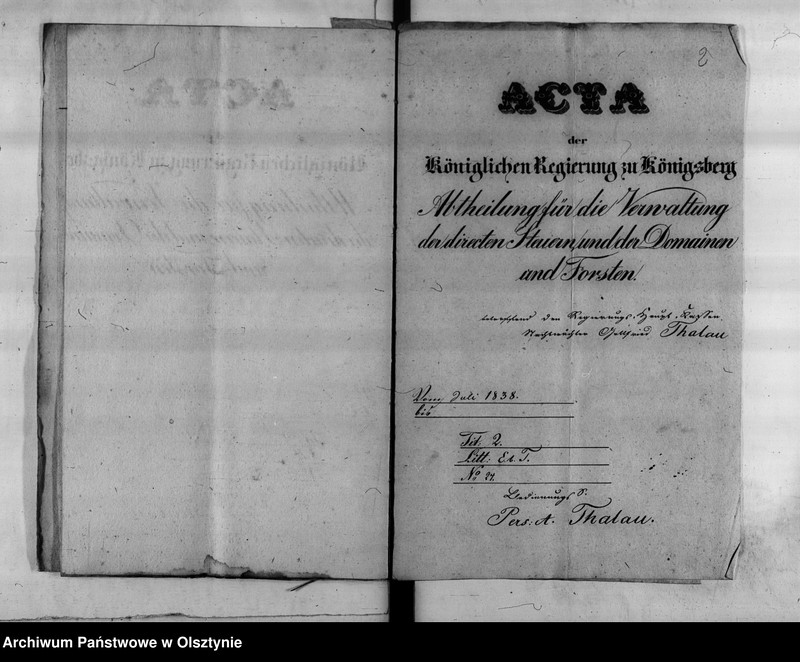 2
ACTA
der
Königlichen Regierung zu Königsberg
Abtheilung für die Verwaltung
der directen Staiern, und der Domainen
und Forsten.
betreffend den Regierungs-Haupt-Kassen
Nachtwächter Gottfried Thalau
Vom Juli 1838.
bis
Tit: 2.
Litt: Et. T.
No
Pers. A. Thalau.
Archiwum Państwowe w Olsztynie